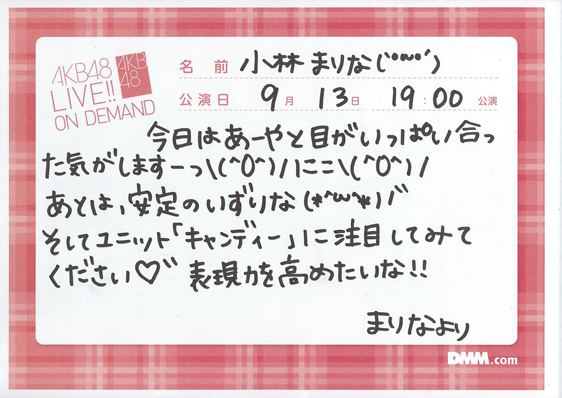 AKB48
LIVE!!
ON DEMAND
AKB
48
名 前 小林 まりな(´•̃ω•̃´)
公演日 9月 13日 19:00 公演
今日はあーやと目がいっぱい合っ
た気がしますーっ\(^O^)/ここ\(^O^)/
あとは、安定のいずりな(*^ω^*)ゞ
そしてユニット「キャンディー」に注目してみて
ください♡゛ 表現力を高めたいな!!
まりなより
DMM.com